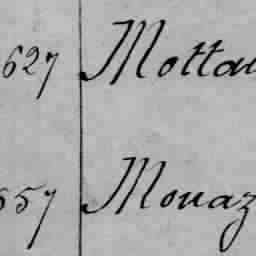 627 Motta
557 Mouaz